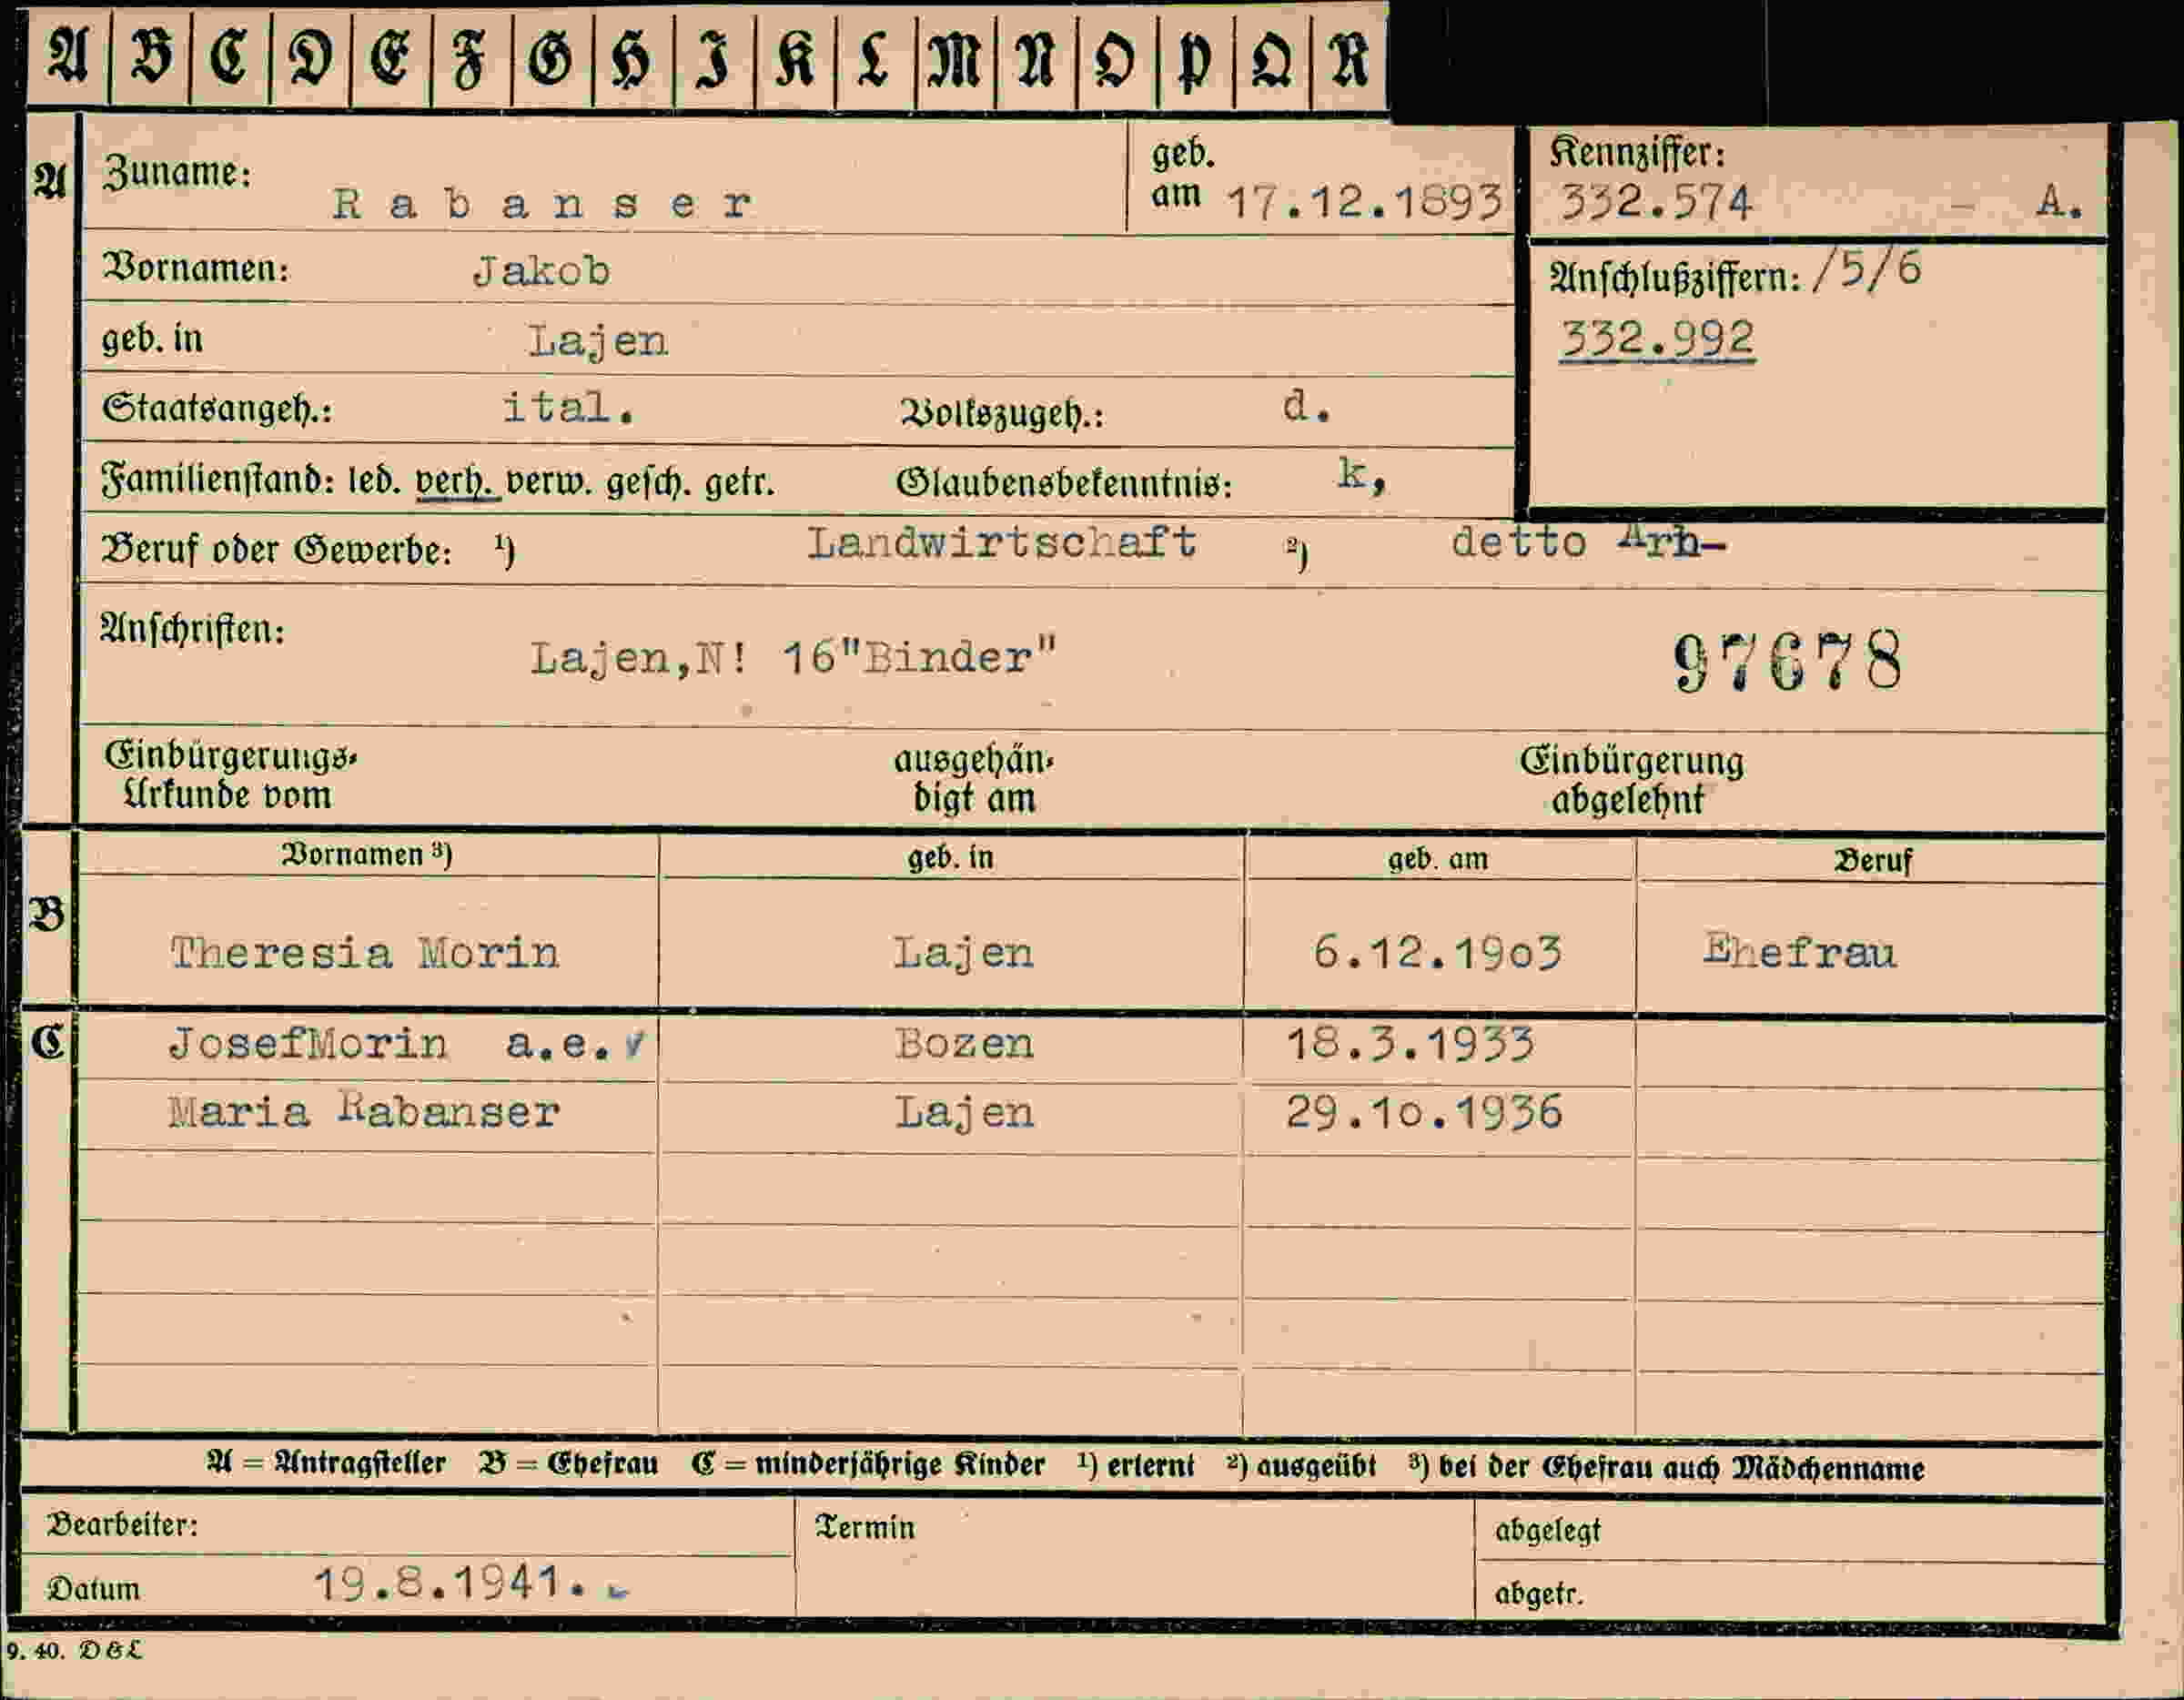 A B C D E F G H I K L M N O P Q R
A Zuname: Rabanser geb. am 17.12.1893 Kennziffer: 332.574 A.
Vornamen: Jakob Anschlußziffern: /5/6
geb. in Lajen 332.992
Staatsangeh.: ital. Volkszugeh.: d.
Familienstand: led. verh. verw. gesch. getr. Glaubensbekenntnis: k,
Beruf oder Gewerbe: ¹) Landwirtschaft ²) detto Arb-
Anschriften: Lajen,N! 16"Binder" 97678
Einbürgerungs- ausgehän- Einbürgerung
Urkunde vom digt am abgelehnt
Vornamen ³) geb. in geb. am Beruf
B Theresia Morin Lajen 6.12.19o3 Ehefrau
C JosefMorin a.e.v Bozen 18.3.1933
Maria Rabanser Lajen 29.1o.1936
A = Antragsteller B = Ehefrau C = minderjährige Kinder ¹) erlernt ²) ausgeübt ³) bei der Ehefrau auch Mädchenname
Bearbeiter: Termin abgelegt
Datum 19.8.1941. abgetr.
9. 40. D & L